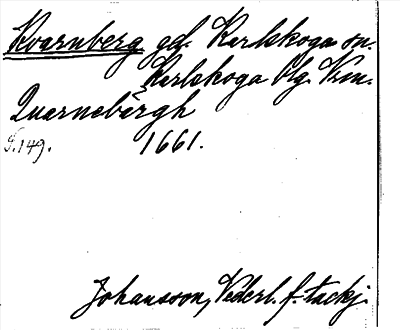 Kvarnberg gd. Karlskoga sn.
Karlskoga blg. Vrm.
Quarnebërgh
S.149. 1661.
Johansson, Vederl. f. tackj.